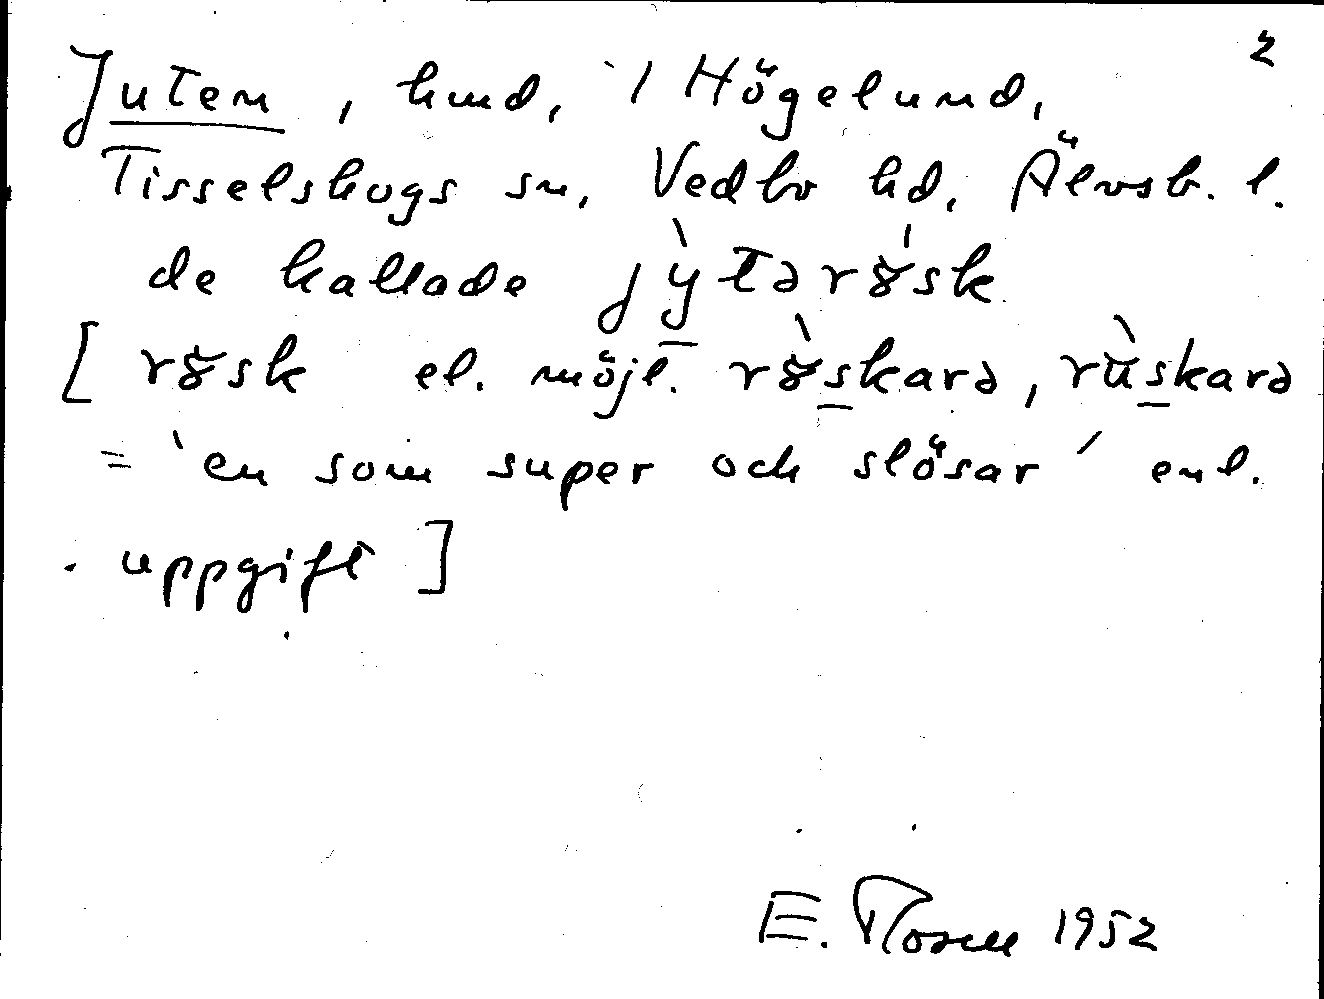 2
Juten, hmd, i Högelund,
Tisselskogs sn, Vedbo hd, Älvsb. l.
de kallade jỳtərösk
[rösk el. möjl. röskarə, rùskarə
= 'en som super och slösar' enl.
uppgift]
E. 1952